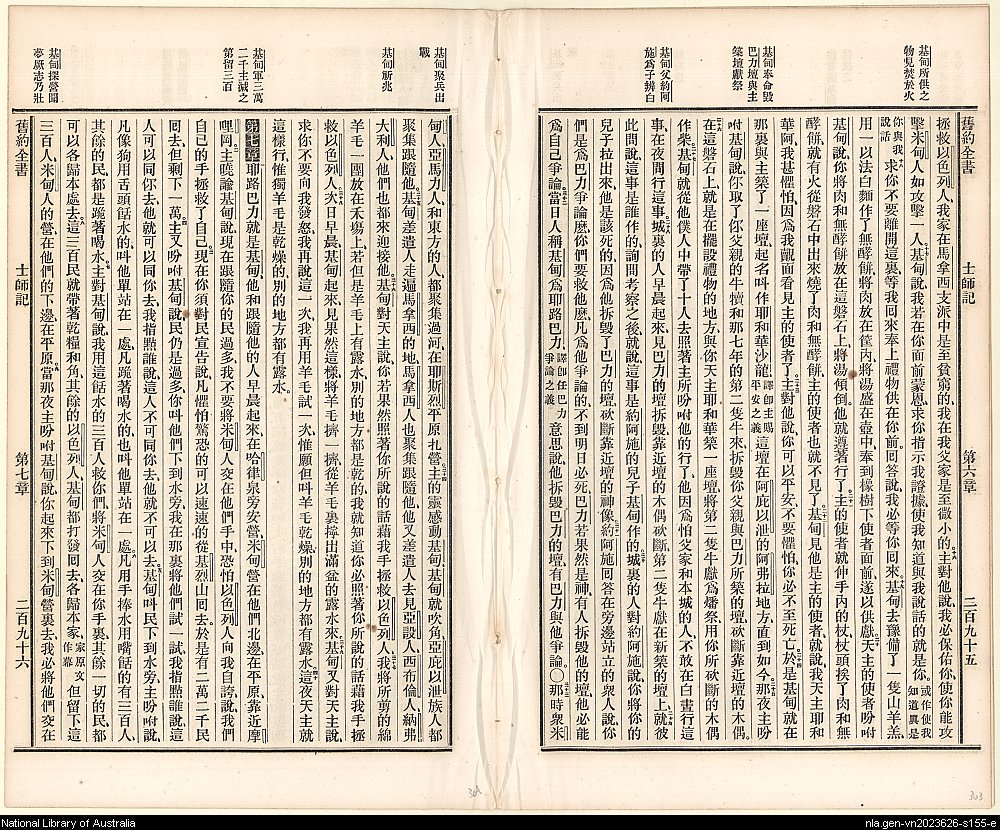 基甸所供之
物見焚於火
基甸奉命毀
巴力壇與主
築壇獻祭
基甸父約阿
施為子辨白
舊約全書
士師記
第六章
二百九十五
拯救以色列人我家在馬拿西支派中是至貧窮的我在我父家是至微小的主對他說我必保佑你使你能攻
擊米甸人如攻擊一人基甸說我若在你面前蒙恩求你指示我證據使我知道與我說話的就是你或作使我知道異是
你與我說話求你不要離開這裏等我回來奉上禮物供在你前回答說我必等你回來基甸去豫備了一隻山羊羔
用一以法白麵作了無酵餅將肉放在筐內將湯盛在壺中奉到橡樹下使者面前遂以供獻天主的使者吩咐
基甸說你將肉和無酵餅放在這磐石上將湯傾倒他就遵著行了主的使者就伸手內的杖杖頭挨了肉和無
酵餅就有火從磐石中出來燒了肉和無酵餅主的使者也就不見了基甸見他是主的使者就說我天主耶和
華阿我甚懼怕因為我覿面看見主的使者了主對他說你可以平安不要懼怕你必不至死亡於是基甸就在
那裏與主築了一座壇起名叫作耶和華沙龍譯卽主賜平安之義這壇在阿庇以泄的阿弗拉地方直到如今那夜主吩
咐基甸說你取了你父親的牛犢和那七年的第二隻牛來拆毀你父親與巴力所築的壇砍斷靠近壇的木偶
在這磐石上就是在擺設禮物的地方與你天主耶和華築一座壇將第二隻牛獻為燔祭用你所砍斷的木偶
作柴基甸就從他僕人中帶了十人去照著主所吩咐他的行了他因為怕父家和本城的人不敢在白晝行這
事在夜間行這事城裏的人早晨起來見巴力的壇拆毀靠近壇的木偶砍斷第二隻牛獻在新築的壇上就彼
此問說這事是誰作的詢問考察之後就說這事是約阿施的兒子基甸作的城裏的人對約阿施說你將你的
兒子拉出來他是該死的因為他拆毀了巴力的壇砍斷靠近壇的神像約阿施回答在旁邊站立的眾人說你
們是為巴力爭論麼你們要救他麼凡為他爭論的不到明日必死巴力若果然是神有人拆毀他的壇他必能
為自己爭論當日人稱基甸為耶路巴力譯卽任巴力爭論之義意思說他拆毀巴力的壇有巴力與他爭論〇那時眾米
基甸聚兵出
戰
基甸祈兆
基甸軍三萬
二千主減之
第留三百
基甸探營聞
夢厥志乃壯
甸人亞馬力人和東方的人都聚集過河在耶斯烈平原扎營主的靈感動基甸基甸就吹角亞庇以泄族人都
聚集跟隨他基甸差遣人走遍馬拿西的地馬拿西人也聚集跟隨他他又差遣人去見亞設人西布倫人納弗
大利人他們也都來迎接他基甸對天主說你若果然照著你所說的話藉我手拯救以色列人我將所剪的綿
羊毛一團放在禾塲上若但是羊毛上有露水別的地方都是乾的我就知道你必照著你所說的話藉我手拯
救以色列人次日早晨基甸起來見果然這樣將羊毛擠一擠從羊毛裏擰出滿盆的露水來基甸又對天主說
求你不要向我發怒我再說這一次我再用羊毛試一次惟願但叫羊毛乾燥別的地方都有露水這夜天主就
這樣行惟獨羊毛是乾燥的別的地方都有露水
第七章耶路巴力就是基甸他和跟隨他的人早晨起來在哈律泉旁安營米甸營在他們北邊在平原靠近摩
哩岡主曉諭基甸說現在跟隨你的民過多我不要將米甸人交在他們手中恐怕以色列人向我自誇說我們
自己的手拯救了自己現在你須對民宣告說凡懼怕驚恐的可以速速的從基烈山回去於是有二萬二千民
回去但剩下一萬主又吩咐基甸說民仍是過多你叫他們下到水旁我在那裏將他們試一試我指點誰說這
人可以同你去他就可以同你去我指點誰說這人不可同你去他就不可以去基甸叫民下到水旁主吩咐說
凡像狗用舌頭餂水的叫他單站在一處凡跪著喝水的也叫他單站在一處凡用手捧水用嘴餂的有三百人
其餘的民都是跪著喝水主對基甸說我用這餂水的三百人救你們將米甸人交在你手裏其餘一切的民都
可以各歸本處去這三百民就帶著乾糧和角其餘的以色列人基甸都打發回去各歸本家家原文作幕但留下這
三百人米甸人的營在他們的下邊在平原當那夜主吩咐基甸說你起來下到米甸營裏去我必將他們交在
舊約全書
士師記
第七章
二百九十六
National Library of Australia
nla.gen-vn2023626-s155-e